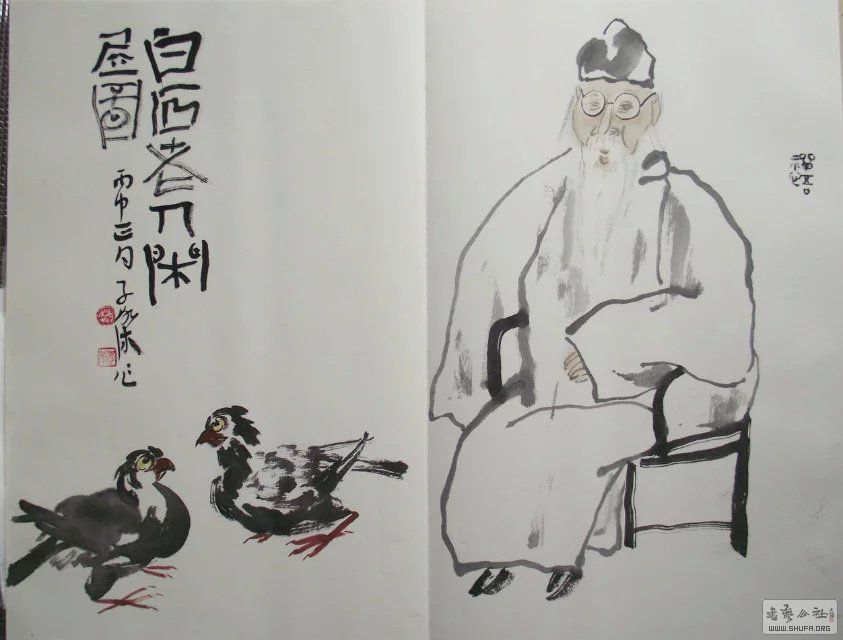 白石老人閑
居圖
丙申正月子作
禪悟
書藝公社
WWW.SHUFA.ORG